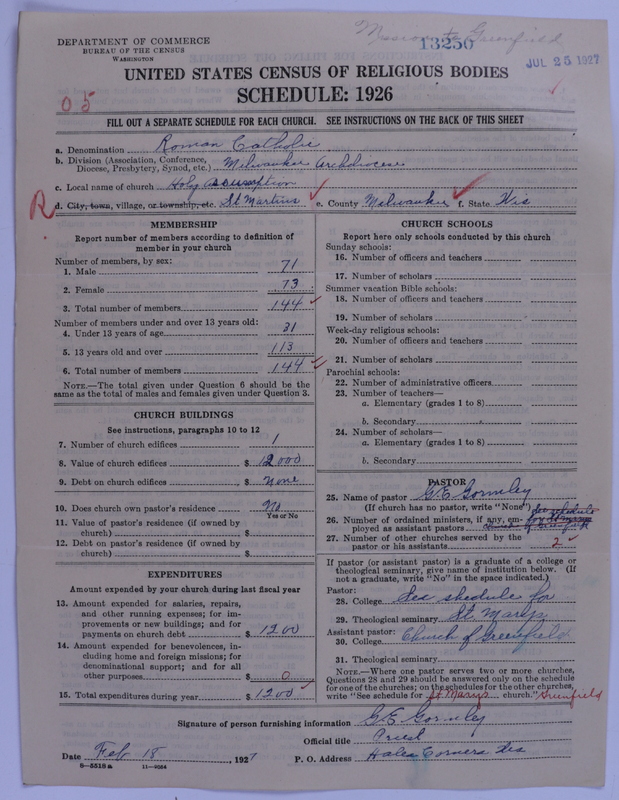 Mission to Greenfield
13250
JUL 25 1927
DEPARTMENT OF COMMERCE
BUREAU OF THE CENSUS
WASHINGTON
UNITED STATES CENSUS OF RELIGIOUS BODIES
SCHEDULE: 1926
05
FILL OUT A SEPARATE SCHEDULE FOR EACH CHURCH. SEE INSTRUCTIONS ON THE BACK OF THIS SHEET
a. Denomination Roman Catholic
b. Division (Association, Conference, Diocese, Presbytery, Synod, etc.) Milwaukee Archdiocese
c. Local name of church Holy Assumption
R d. City, town, village, or township, etc. St Martins e. County Milwaukee f. State Wis
MEMBERSHIP
Report number of members according to definition of
member in your church
Number of members, by sex:
1. Male 71
2. Female 73
3. Total number of members 144
Number of members under and over 13 years old:
4. Under 13 years of age 31
5. 13 years old and over 113
6. Total number of members 144
NOTE.—The total given under Question 6 should be
same as the total of males and females given under Question 3.
CHURCH BUILDINGS
See instructions, paragraphs 10 to 12
7. Number of church edifices 1
8. Value of church edifices $ 12000
9. Debt on church edifices $ None
10. Does church own pastor's residence? No
Yes or No
11. Value of pastor's residence (if owned by
church) $
12. Debt on pastor's residence (if owned by
church) $
EXPENDITURES
Amount expended by your church during last fiscal year
13. Amount expended for salaries, repairs,
and other running expenses; for im-
provements or new buildings; and for
payments on church debt $ 1200
14. Amount expended for benevolences, in-
cluding home and foreign missions; for
denominational support; and for all
other purposes $ 0
15. Total expenditures during year $ 1200
CHURCH SCHOOLS
Report here only schools conducted by this church
Sunday schools:
16. Number of officers and teachers
17. Number of scholars
Summer vacation Bible schools:
18. Number of officers and teachers
19. Number of scholars
Week-day religious schools:
20. Number of officers and teachers
21. Number of scholars
Parochial schools:
22. Number of administrative officers
23. Number of teachers—
a. Elementary (grades 1 to 8)
b. Secondary
24. Number of scholars—
a. Elementary (grades 1 to 8)
b. Secondary
PASTOR
25. Name of pastor G. E. Gormley
(If church has no pastor, write "None")
See schedule
26. Number of ordained ministers, if any, em-
ployed as assistant pastors of Greenfield
27. Number of other churches served by the
pastor or his assistants 2
If pastor (or assistant pastor) is a graduate of a college or
theological seminary, give name of institution below. (If
not a graduate, write "No" in the space indicated.)
Pastor:
28. College See shedule for
29. Theological seminary St Marys
Assistant pastor:
30. College Church of Greenfield
31. Theological seminary
NOTE.—Where one pastor serves two or more churches,
Questions 28 and 29 should be answered only on the schedule
for one of the churches; on the schedules for the other churches,
write "See schedule for St Marys church." Greenfield
Signature of person furnishing information G. E. Gormley
Official title Priest
Date Feb 18, 1927 P. O. Address Hales Corners Wis
6—5518a 11—9064